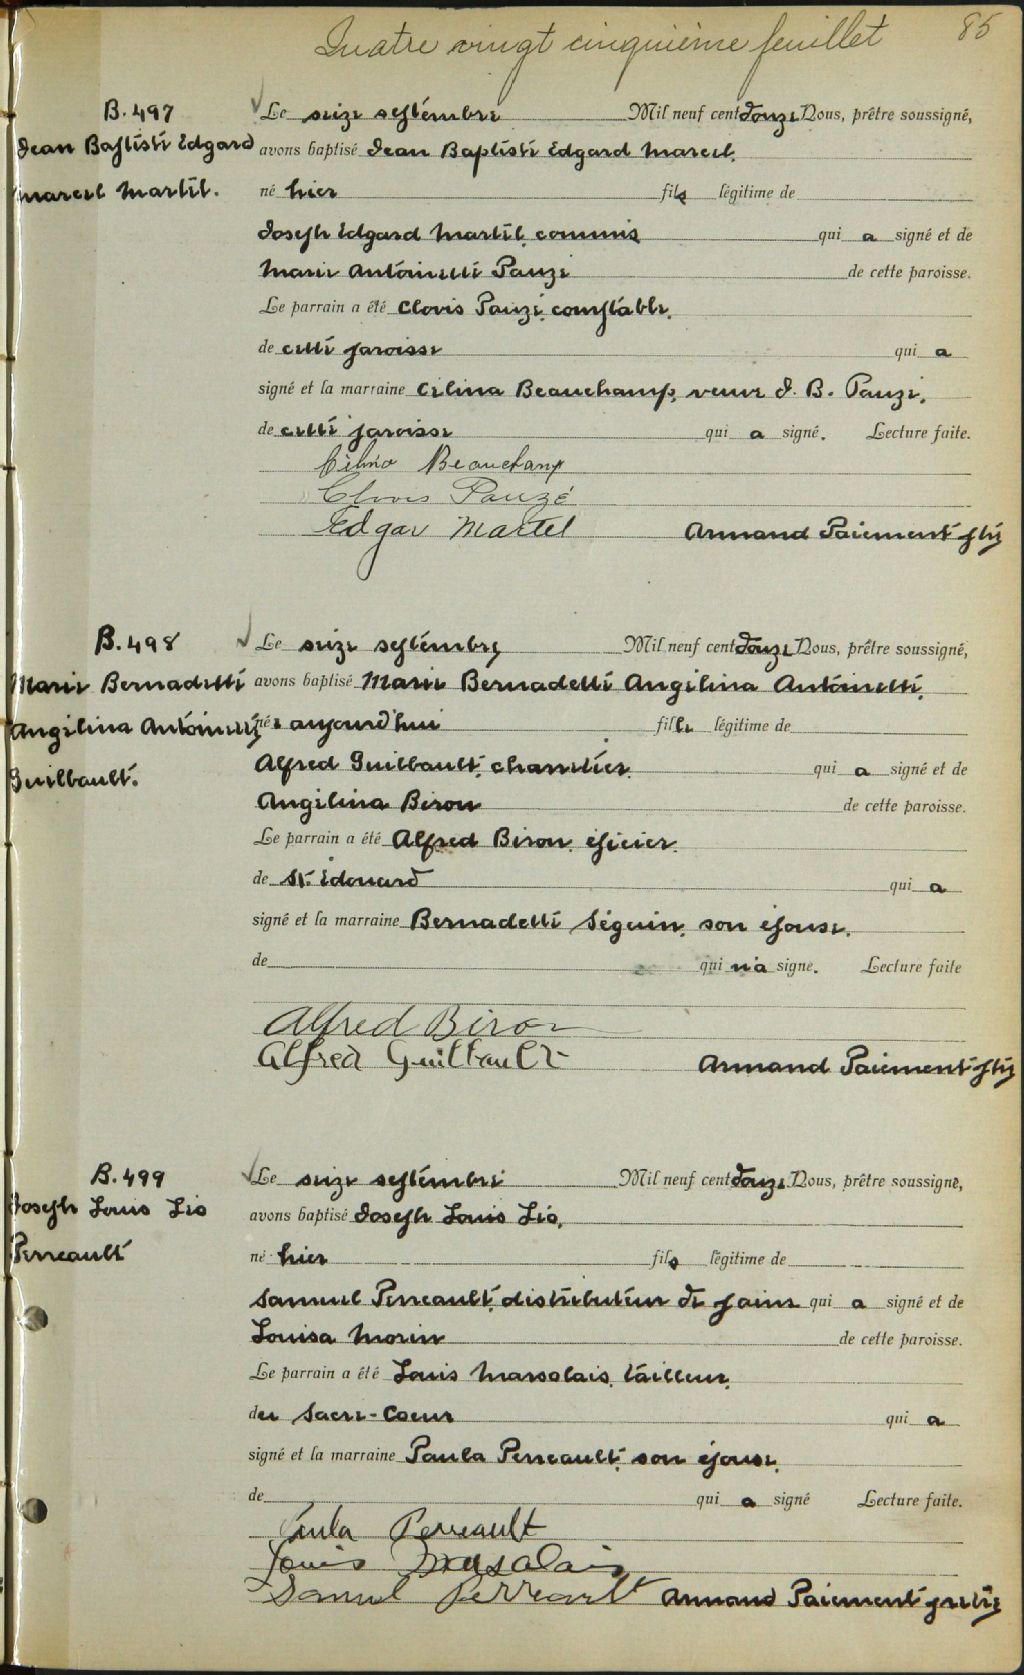 Quatre vingt cinquième feuillet 85
B. 497
Jean Baptiste Edgard
Marcel Martel.
Le seize septembre Mil neuf cent douze Nous, prêtre soussigné,
avons baptisé Jean Baptiste Edgard Marcel,
né hier fils légitime de
Joseph Edgard Martel, commis qui a signé et de
Marie Antoinette Pauzé de cette paroisse.
Le parrain a été Clovis Pauzé, constable,
de cette paroisse qui a
signé et la marraine Célina Beauchamp, veuve J. B. Pauzé,
de cette paroisse qui a signé. Lecture faite.
Célina Beauchamp
Clovis Pauzé
Edgar Martel Armand Paiement ptre
B. 498
Marie Bernadette
Angélina Antoinette
Guilbault.
Le seize septembre Mil neuf cent douze Nous, prêtre soussigné,
avons baptisé Marie Bernadette Angélina Antoinette,
née aujourd'hui fille légitime de
Alfred Guilbault, charretier, qui a signé et de
Angélina Biron de cette paroisse.
Le parrain a été Alfred Biron, épicier,
de St. Édouard qui a
signé et la marraine Bernadette Séguin, son épouse,
de qui n'a signé. Lecture faite
Alfred Biron
Alfred Guilbault Armand Paiement ptre
B. 499
Joseph Louis Léo
Perreault
Le seize septembre Mil neuf cent douze Nous, prêtre soussigné,
avons baptisé Joseph Louis Léo,
né hier fils légitime de
Samuel Perreault, distributeur de pains qui a signé et de
Louisa Morin de cette paroisse.
Le parrain a été Louis Marsolais, tailleur,
du Sacré-Coeur qui a
signé et la marraine Paula Perreault, son épouse,
de qui a signé Lecture faite.
Paula Perreault
Louis Marsalais
Samuel Perreault Armand Paiement prêtre